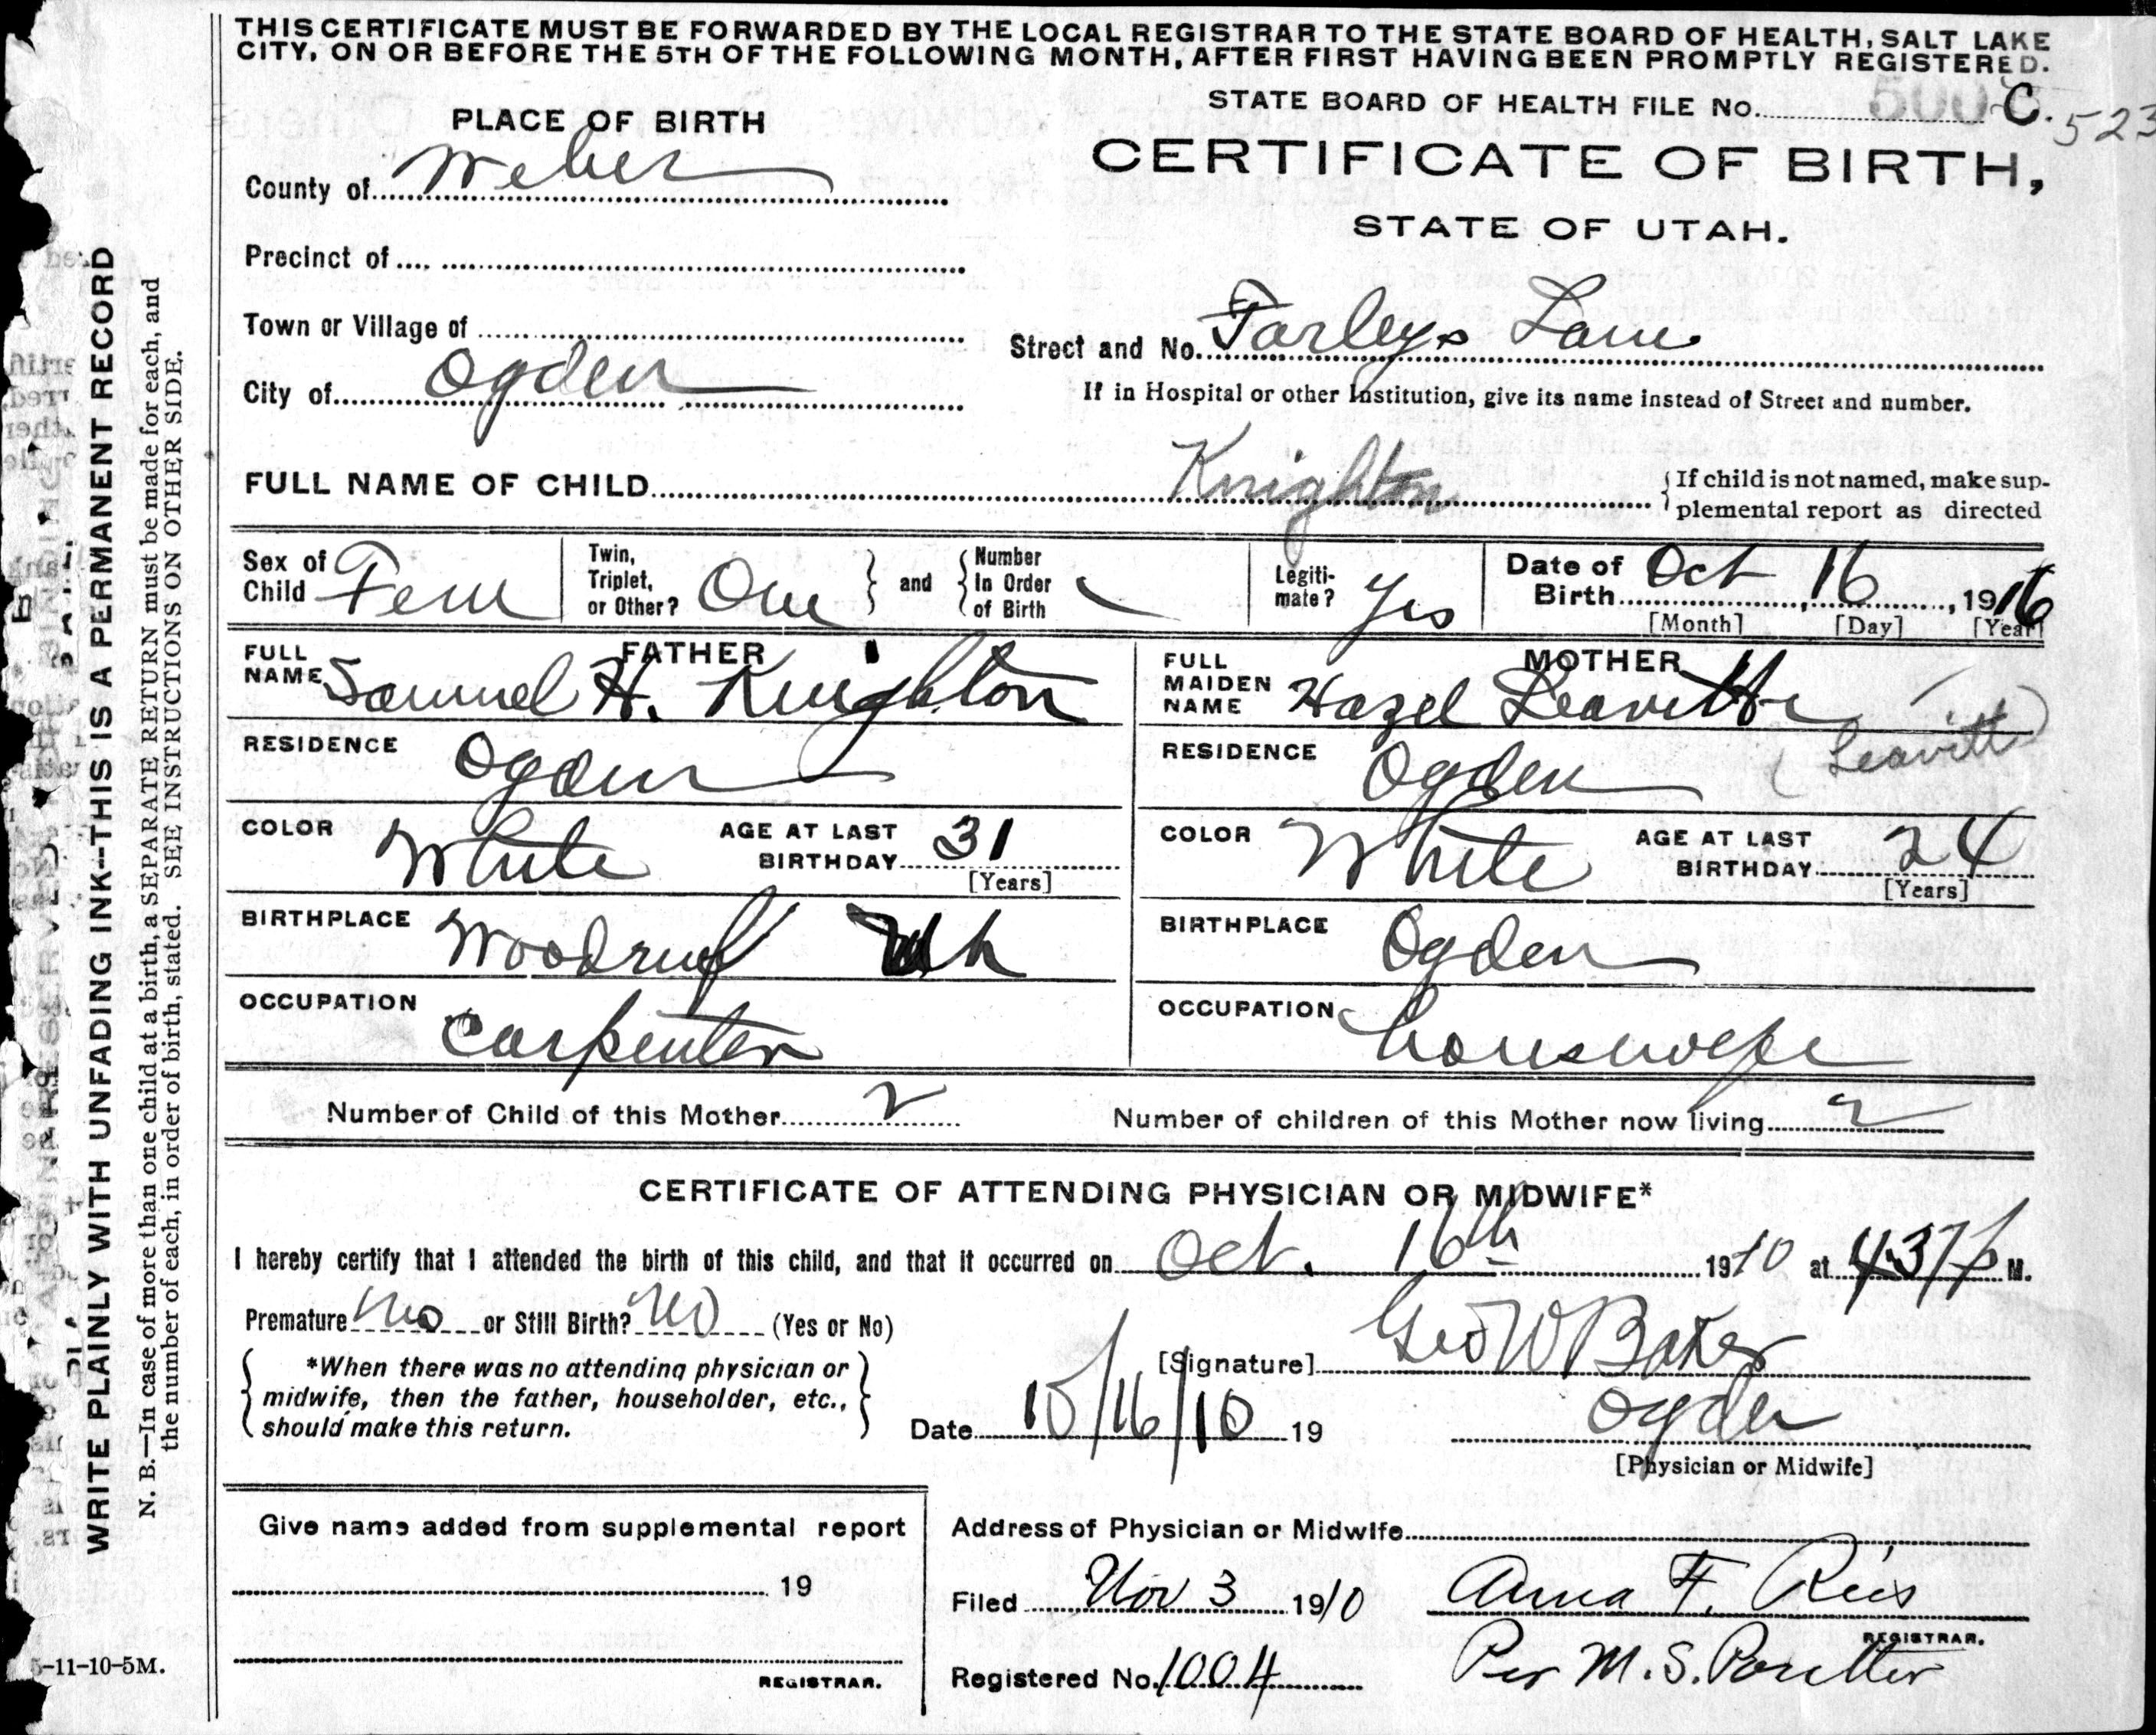 THIS CERTIFICATE MUST BE FORWARDED BY THE LOCAL REGISTRAR TO THE STATE BOARD OF HEALTH, SALT LAKE
CITY, ON OR BEFORE THE 5TH OF THE FOLLOWING MONTH, AFTER FIRST HAVING BEEN PROMPTLY REGISTERED.
STATE BOARD OF HEALTH FILE No. 500 C. 523
PLACE OF BIRTH
CERTIFICATE OF BIRTH,
County of Weber
STATE OF UTAH.
Precinct of
Town or Village of
Street and No. Farleys Lane
City of Ogden
If in Hospital or other Institution, give its name instead of Street and number.
FULL NAME OF CHILD Knighton
If child is not named, make sup-
plemental report as directed
Sex of Child Fem
Twin, Triplet, or Other? One and Number In Order of Birth
Legiti-mate? Yes
Date of Birth Oct 16, 1916
[Month] [Day] [Year]
FATHER
FULL NAME Samuel H. Knighton
RESIDENCE Ogden
COLOR White AGE AT LAST BIRTHDAY 31
[Years]
BIRTHPLACE Woodruf Utah
OCCUPATION Carpenter
MOTHER
FULL MAIDEN NAME Hazel Leavitte
RESIDENCE Ogden (Leavitt)
COLOR White AGE AT LAST BIRTHDAY 24
[Years]
BIRTHPLACE Ogden
OCCUPATION housewife
Number of Child of this Mother 2 Number of children of this Mother now living 2
CERTIFICATE OF ATTENDING PHYSICIAN OR MIDWIFE*
I hereby certify that I attended the birth of this child, and that it occurred on Oct. 16th 1910 at 4:37 p M.
Premature No or Still Birth? No (Yes or No)
*When there was no attending physician or
midwife, then the father, householder, etc.,
should make this return.
[Signature] Geo W Baker
Date 10/16/10 19
Ogden
[Physician or Midwife]
Give name added from supplemental report
19
REGISTRAR.
Address of Physician or Midwife
Filed Nov 3 1910 Anna F. Reis
REGISTRAR.
Registered No. 1004 Per M. S. Poulter
5-11-10-5M.
WRITE PLAINLY WITH UNFADING INK--THIS IS A PERMANENT RECORD
N. B.—In case of more than one child at a birth, a SEPARATE RETURN must be made for each, and
the number of each, in order of birth, stated. SEE INSTRUCTIONS ON OTHER SIDE.